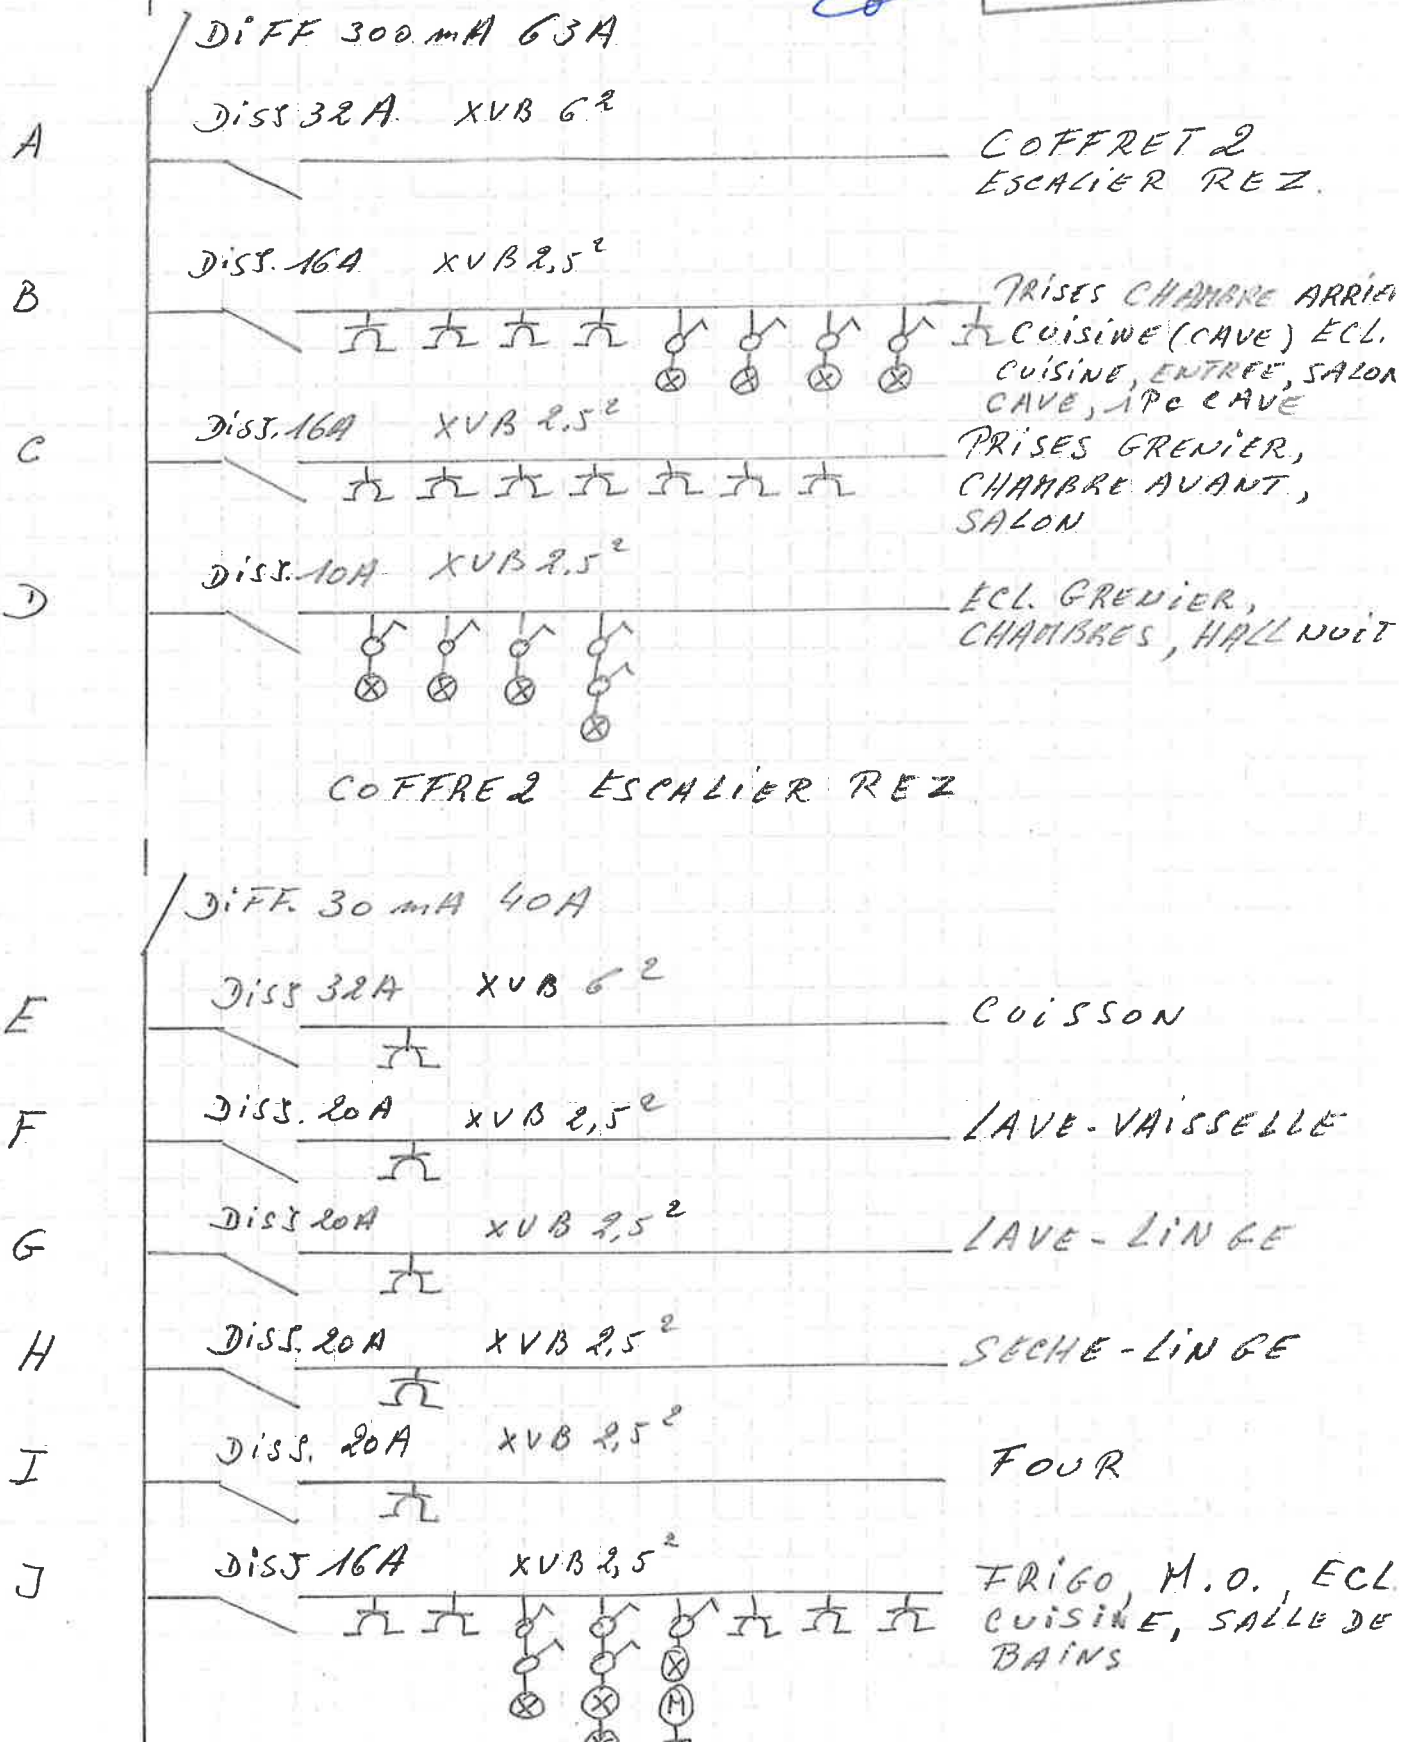 DiFF 300 mA 63A
A
Disj 32A XVB 6²
COFFRET 2
ESCALiER REZ.
B
Disj. 16A XVB 2,5²
PRiSES CHAMBRE ARRiE
CUiSiNE (CAVE) ECL.
CUiSiNE, ENTREE, SALON
CAVE, 1PC CAVE
C
Disj. 16A XVB 2.5²
PRiSES GRENiER,
CHAMBRE AVANT,
SALON
D
Disj. 10A XVB 2.5²
ECL. GRENiER,
CHAMBRES, HALL NUiT
COFFRE 2 ESCALiER REZ
DiFF. 30 mA 40A
E
Disj 32A XVB 6²
CUiSSON
F
Disj. 20A XVB 2,5²
LAVE-VAiSSELLE
G
Disj 20A XVB 2,5²
LAVE-LiNGE
H
Disj. 20A XVB 2,5²
SECHE-LiNGE
I
Disj. 20A XVB 2,5²
FOUR
J
DisJ 16A XVB 2,5²
FRiGO, M.O., ECL
CUiSiNE, SALLE DE
BAiNS
M